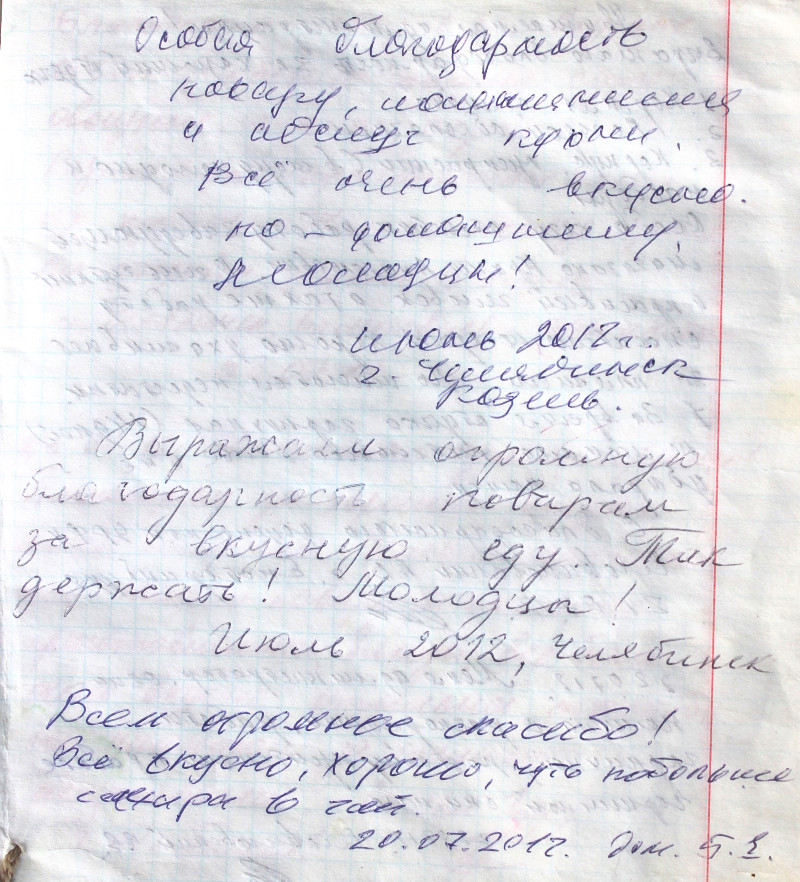 Особая благодарность
повару, помощникам
и кухни.
Все очень вкусно.
по-домашнему,
Молодцы!
Июль 2012г.
г. Челябинск
Выражаем огромную
благодарность поварам
за вкусную еду. Так
держать! Молодцы!
Июль 2012, Челябинск
Всем огромное спасибо!
Всё вкусно, хорошо, чуть побольше
сахара в чай.
20.07.2012. дом. 5.